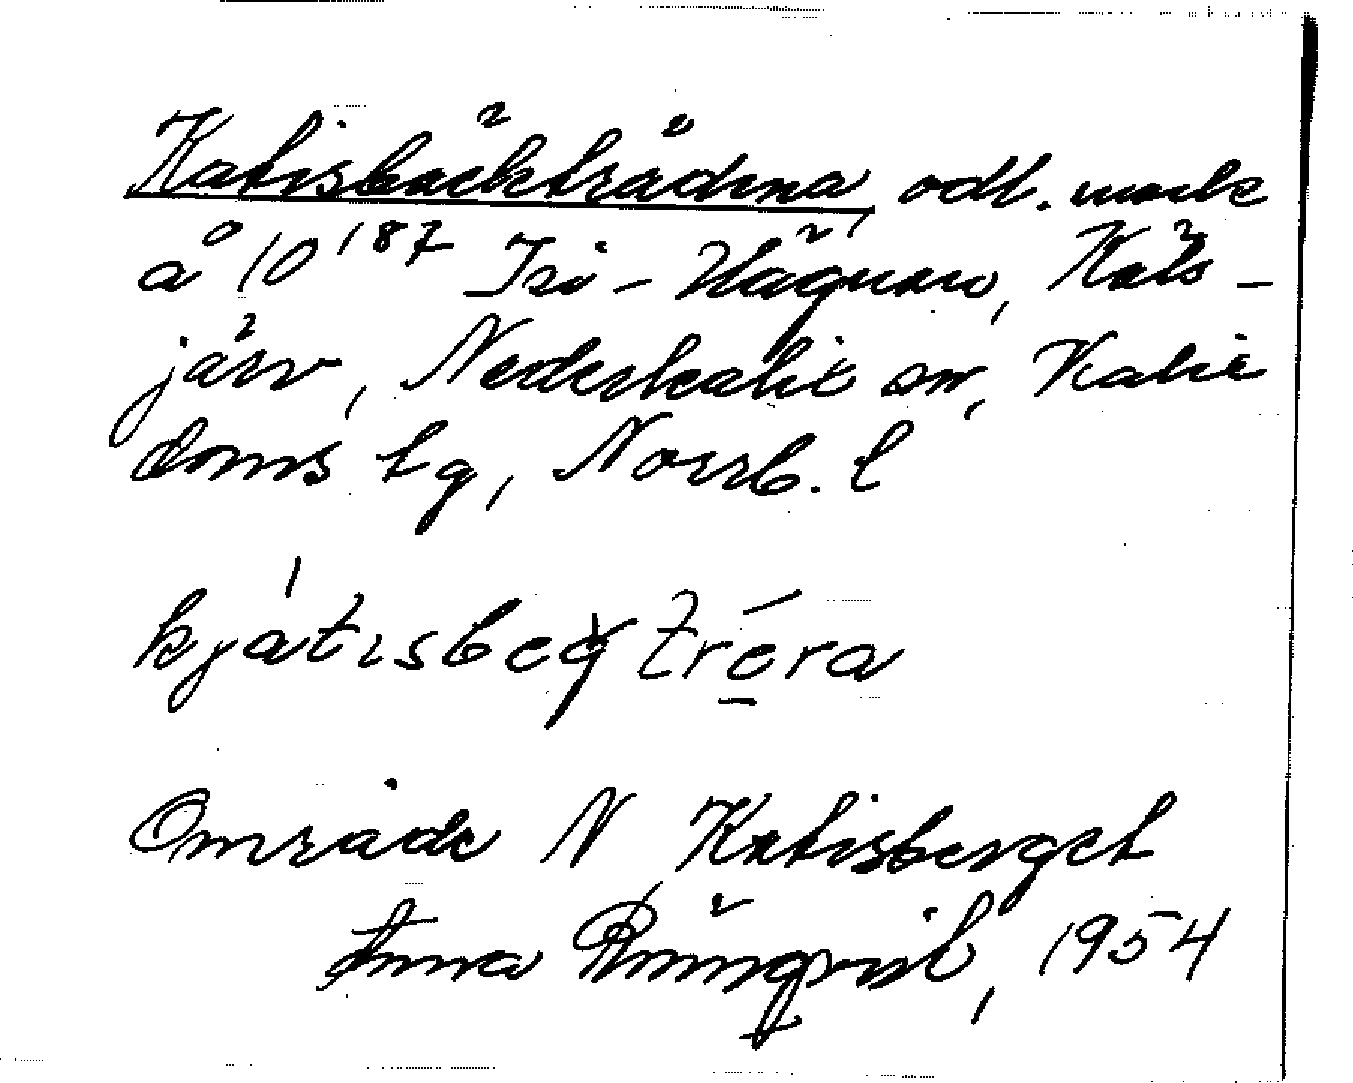 Katisbäckträdena, odl. mark
å 10 187 Tri-Vägnaren, Käls-
järv, Nederkalix sn, Kalix
doms tg, Norrb. l
kjátisbeχtrera
Område N Katisberget
Anna Rönnqvist, 1954